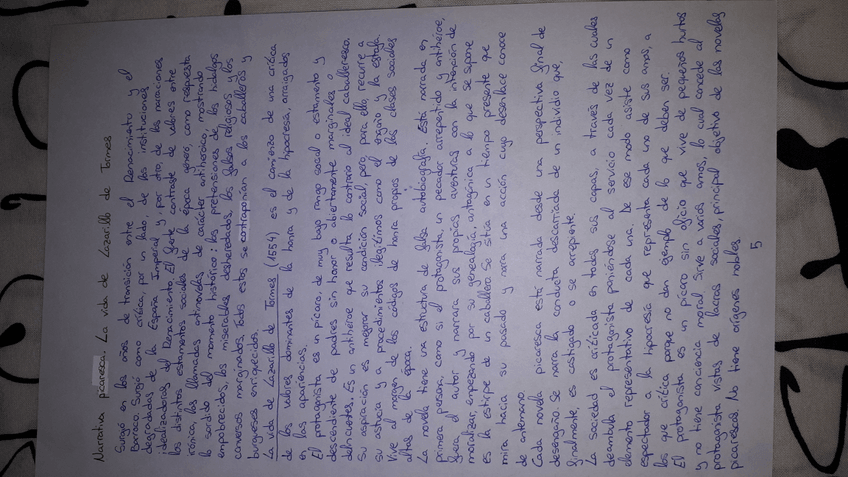 Narrativa picaresca. La vida de Lazarillo de Tormes
Surgió en los años de transición entre el Renacimiento y el
Barroco. Surgió como crítica, por un lado, de las instituciones
degradadas de la España Imperial y, por otro, de las narraciones
idealizadoras del Renacimiento. El fuerte contraste de valores entre
los distintos estamentos sociales de la época generó, como respuesta
irónica, las llamadas antinovelas de carácter antiheroico, mostrando
lo sórdido del momento histórico: las pretensiones de los hidalgos
empobrecidos, los miserables desheredados, los falsos religiosos y los
conversos marginados. Todos estos se contraponían a los caballeros y
burgueses enriquecidos.
La vida de Lazarillo de Tormes (1554) es el comienzo de una crítica
de los valores dominantes de la honra y de la hipocresía, arraigados
en las apariencias.
El protagonista es un pícaro, de muy bajo rango social o estamento y
descendiente de padres sin honor o abiertamente marginales o
delincuentes. Es un antihéroe que resulta lo contrario al ideal caballeresco.
Su aspiración es mejorar su condición social, pero, para ello, recurre a
su astucia y a procedimientos ilegítimos como el engaño y la estafa.
Vive al margen de los códigos de honra propios de las clases sociales
altas de la época.
La novela tiene una estructura de falsa autobiografía. Está narrada en
primera persona, como si el protagonista, un pecador arrepentido y antihéroe,
fuera el autor y narrara sus propias aventuras con la intención de
moralizar, empezando por su genealogía, antagónica a lo que se supone
es la estirpe de un caballero. Se sitúa en un tiempo presente que
mira hacia su pasado y narra una acción cuyo desenlace conoce
de antemano.
Cada novela picaresca está narrada desde una perspectiva final de
desengaño. Se narra la conducta descarriada de un individuo que,
finalmente, es castigado o se arrepiente.
La sociedad es criticada en todas sus capas, a través de las cuales
deambula el protagonista poniéndose al servicio cada vez de un
elemento representativo de cada una. De ese modo asiste como
espectador a la hipocresía que representa cada uno de sus amos, a
los que critica porque no dan ejemplo de lo que deben ser.
El protagonista es un pícaro sin oficio que vive de pequeños hurtos
y no tiene conciencia moral. Sirve a varios amos, lo cual concede al
protagonista vistas de lacras sociales, principal objetivo de las novelas
picarescas. No tiene orígenes nobles
5